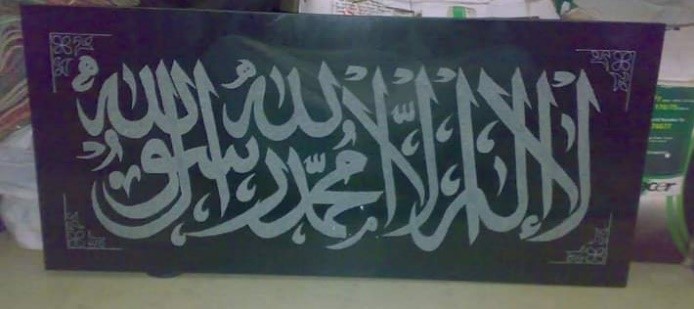 لا إله إلا الله محمد رسول الله
acer